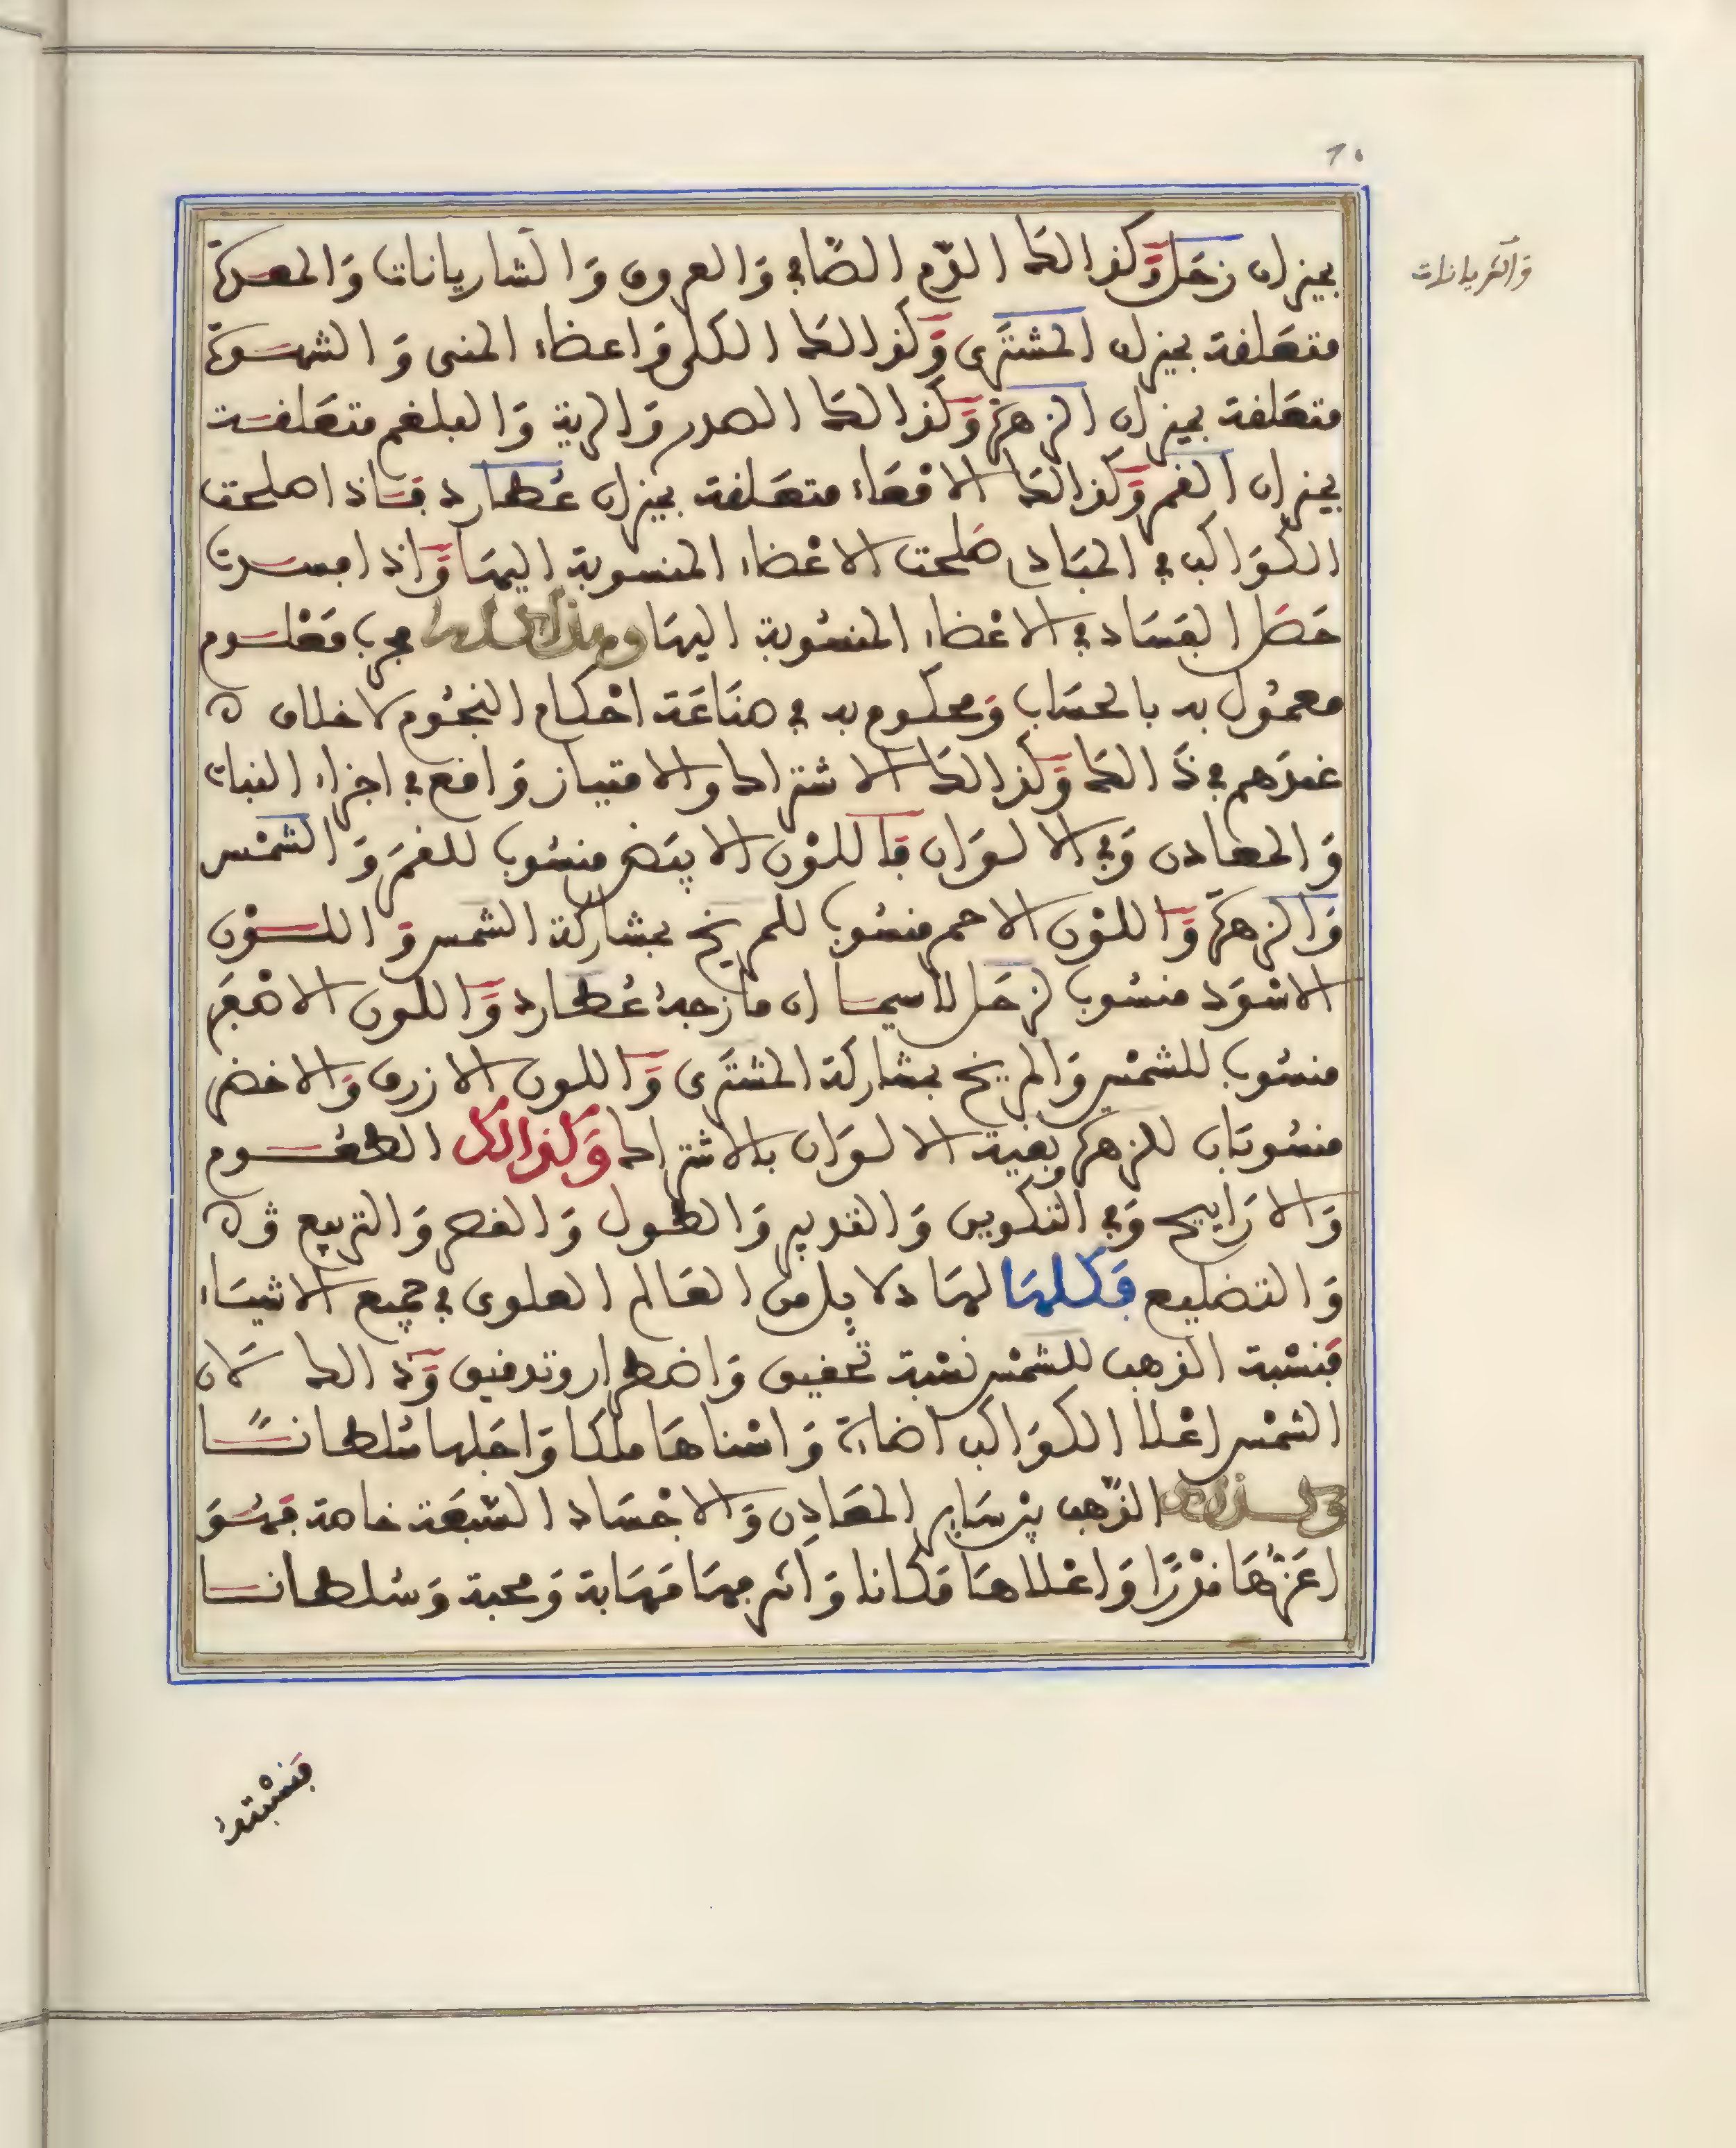 بميزان زحل وكذالك الدّم الصّافي والعروق والشاريانات والمعدة
والشريانات
متعلقة بميزان المشترى وكذالك الكلى واعضاء المنى والشهوة
متعلقة بميزان الزهرة وكذالك الصدر والرية والبلغم متعلقة
بميزان القمر وكذالك الامعاء متعلقة بميزان عطارد فاذا صلحت
الكواكب في المبادي صلحت الاعضاء المنسوبة اليها واذا فسدت
حصل الفساد في الاعضاء المنسوبة اليها وهذا كله مجرب معلوم
معمول به بالحساب ومحكوم به في صناعة احكام النجوم لا خلاف
عندهم في ذالك وكذالك الاشتراك والامتياز واقع في اجزاء النبات
والمعادن وفي الالوان فاللون الابيض منسوب للقمر والشمس
والزهرة واللون الاحمر منسوب للمريخ بمشاركة الشمس واللون
الاسود منسوب لزحل لاسيما ان مازجه عطارد واللون الاصفر
منسوب للشمس والمريخ بمشاركة المشترى واللون الازرق والاخضر
منسوبان للزهرة وبقية الالوان بالاشتراك وكذالك الطعوم
والاراييح وفي التكوين والتدوير والطول والقصر والتربيع
والتضليع فكلها لها دلايل من العالم العلوى في جميع الاشياء
فنسبة الذهب للشمس نسبة تحقيق واضطرار وتدقيق وذالك لان
الشمس اعلا الكواكب اضاءة واسناها ملكا واجلها سلطانا
وكذالك الذهب بين ساير المعادن والاجساد السبعة خاصة فهو
اعزها قدرًا واعلاها مكانا واكثرها مهابة ومحبة وسلطانا
فنسبته